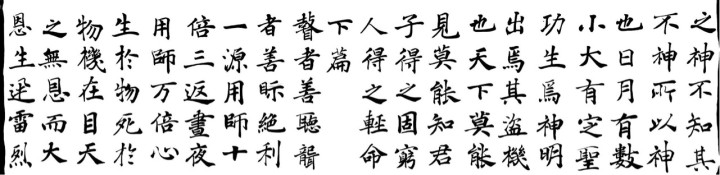 之神不知其
不神所以神
也日月有數
小大有定聖
功生焉神明
出焉其盜機
也天下莫能
見莫能知君
子得之固窮
人得之輕命
下篇
瞽者善聽聾
者善眎絕利
一源用師十
倍三返晝夜
用師万倍心
生於物死於
物機在目天
之無恩而大
恩生迅雷烈